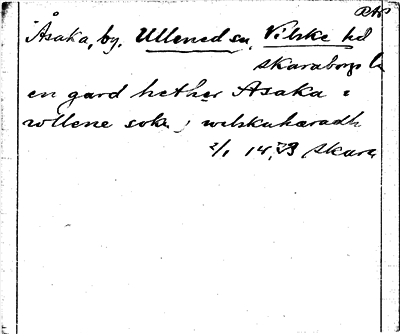 RAP
Åsaka, by. Ullened sn, Vilske hd
Skaraborgs l
en gard hether Asaka i
wllene sokn j wilskuhæradh
2/1 14 Skara